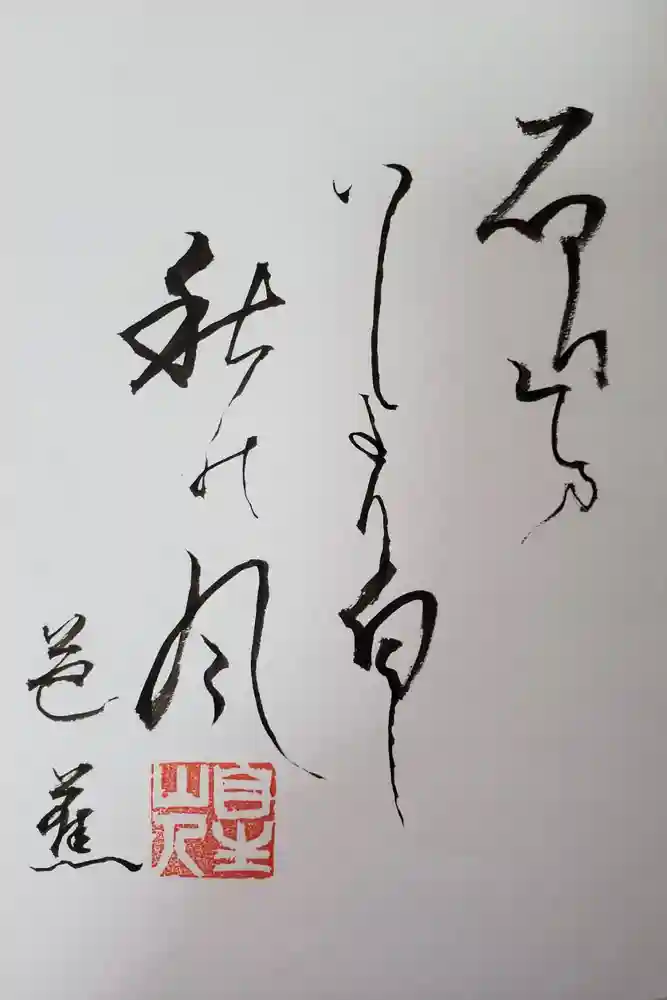 石山の
いしより白し
秋の風
芭蕉